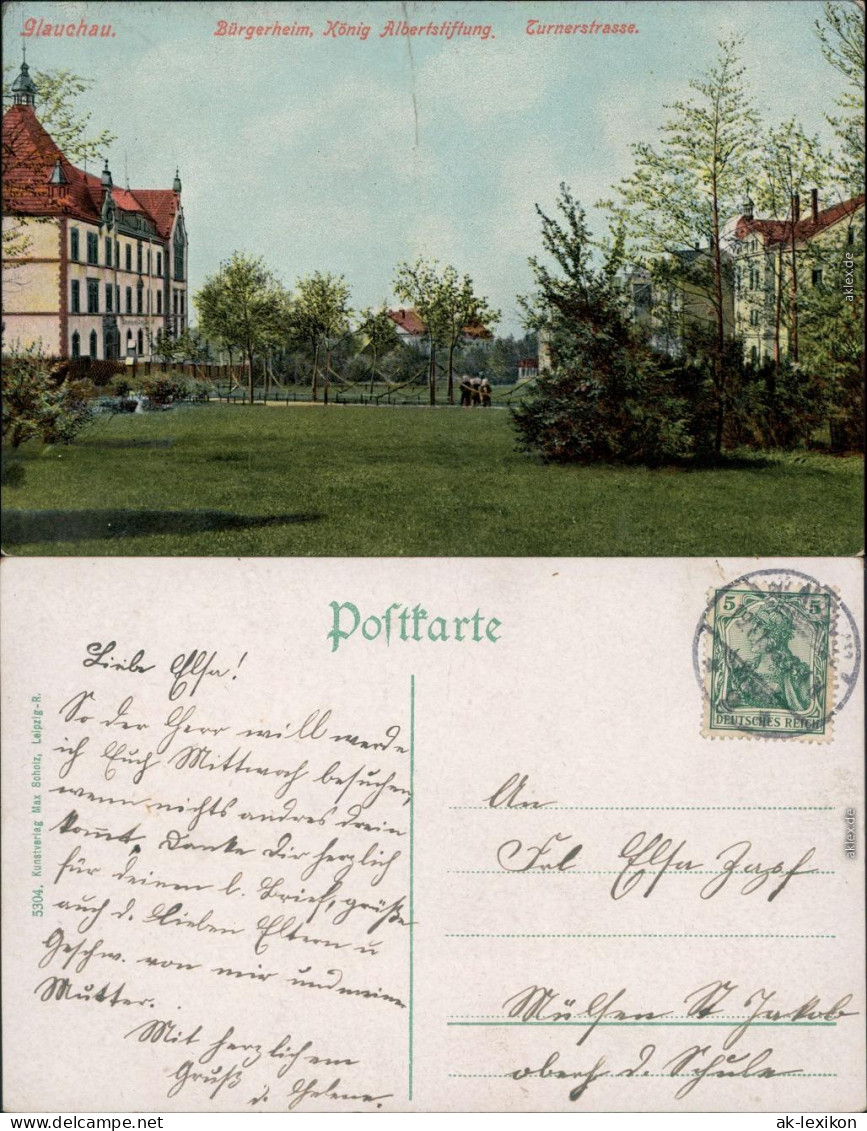 Glauchau. Bürgerheim, König Albertstiftung. Turnerstrasse.
aklex.de
Postkarte
5304. Kunstverlag Max Scholz, Leipzig-R.
5 5
DEUTSCHES REICH
Liebe Elsa!
So der Herr will werde
ich Euch Mittwoch besuchen,
wenn nichts andres drein
kommt. Danke Dir herzlich
für deinen l. Brief, grüße
auch d. lieben Eltern u
Geschw. von mir und meine
Mutter.
Mit herzlichem
Gruß
d. Helene.
An
Frl Elsa Zapf
Mülsen St Jakob
oberh d. Schule
aklex.de
ak-lexikon